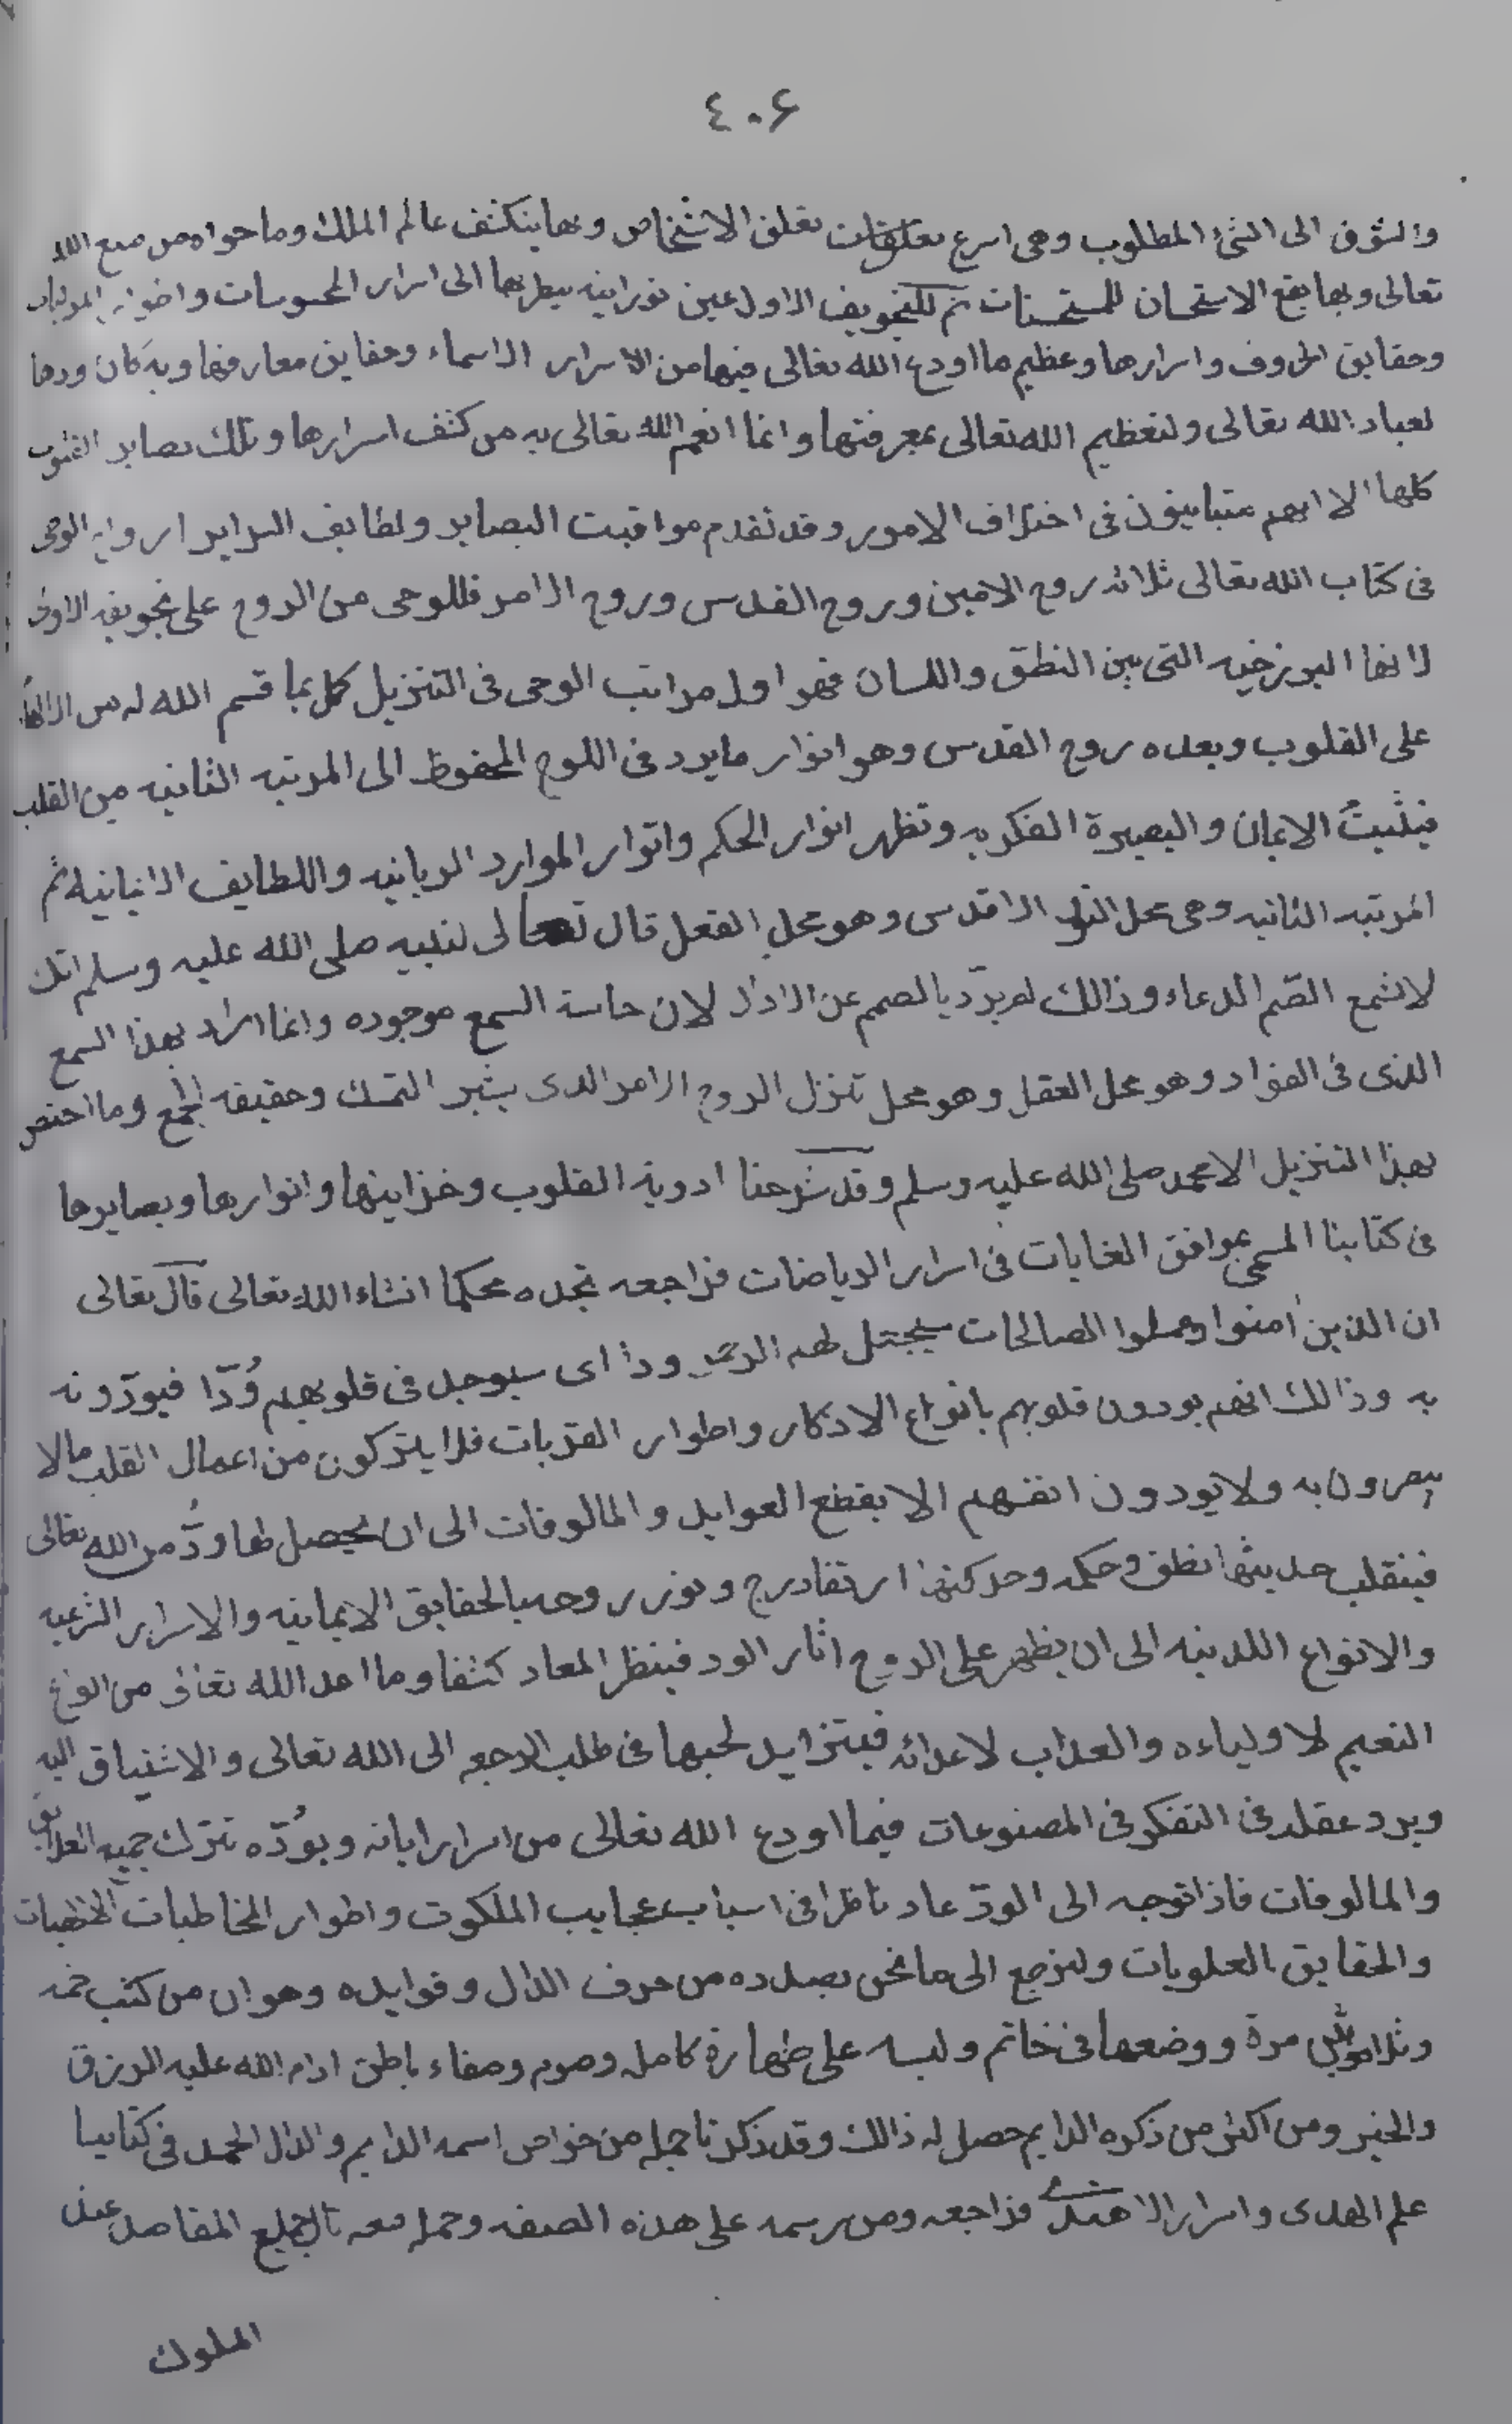 ٤٠۶
والشوق الى الشئ المطلوب وهى اسرع تعلقات تعلق الاشخاص وبها ينكشف عالم الملك وما حواه من صنع الله
تعالى وبها يقع الاستحسان للمستحسنات ثم للتجويف الاول عين نورانيه ينظر بها الى اسرار المحسوسات
وحقايق الحروف واسرارها وعظيم ما اودع الله تعالى فيها من الاسرار الاسماء وحقايق معارفها وبه كان ودها
لعباد الله تعالى ولتعظيم الله تعالى بمعرفتها وانما انعم الله تعالى به من كشف اسرارها وتلك بصاير القلوب
كلها الا انهم متباينون فى اختلاف الامور وقد تقدم مواقيت البصاير ولطايف السراير ارواح الوحى
فى كتاب الله تعالى ثلاثه روح الامين وروح القدس وروح الامر فللوحى من الروح على تجويفه الاول
لانها البرزخيه التى بين النطق واللسان فهو اول مراتب الوحى فى التنزيل كل بما قسم الله له من
على القلوب وبعده روح القدس وهو انوار ما يرد فى اللوح المحفوظ الى المرتبه الثانيه من القلب
فيثبت الايمان والبصيرة الفكريه وتظهر انوار الحكم وانوار الموارد الربانيه واللطايف الانسانيه ثم
المرتبه الثانيه وهى محل الاقدسى وهو محل الفعل قال تعالى لنبيه صلى الله عليه وسلم انك
لا تسمع الصم الدعاء وذالك لم يرد بالصمم عن الاذان لان حاسة السمع موجوده وانما اراد بهذا السمع
الذى فى الفواد وهو محل العقل وهو محل تنزل الروح الامر الذى يثير التمسك وحقيقه الجمع وما اختص
بهذا التنزيل الا محمد صلى الله عليه وسلم وقد شرحنا ادوية القلوب وخزاينها وانوارها وبصايرها
فى كتابنا المسمى بموافق الغايات فى اسرار الرياضات فراجعه تجده محكما انشاء الله تعالى قال تعالى
ان الذين امنوا وعملوا الصالحات سيجعل لهم الرحمن ودا اى سيوجد فى قلوبهم وُدّا فيودّونه
به وذالك انهم يودون قلوبهم بانواع الاذكار واطوار القربات فلا يتركون من اعمال القلب ما لا
به ولا يودون انفسهم الا بقطع العوايد والمالوفات الى ان يحصل لها ودّ من الله تعالى
فينقلب حديثها نطق وحكمه وحركتها ارتقا درج بالحقايق الايمانيه والاسرار الشرعيه
والانواع اللدنيه الى ان يظهر على الروح اثار الود فينظر المعاد كشفا وما اعد الله تعالى من انواع
النعيم لاولياءه والعذاب لاعدائه فيتزايد لحبها فى طلب الرجعه الى الله تعالى والاشتياق اليه
ويرد عقله فى التفكر فى المصنوعات فيما اودع الله تعالى من اسرار اياته وبودّه تترك جميع العلايق
والمالوفات فاذا توجه الى الودّ عاد ناظرا فى اسباب عجايب الملكوت واطوار المخاطبات
والحقايق العلويات ولنرجع الى ما نحن بصدده من حرف الدال وفوايده وهو ان من كتب خمسه
وثلاثين مرة ووضعها فى خاتم ولبسه على طهارة كامله وصوم وصفاء باطن ادام الله عليه الرزق
والخير ومن اكثر من ذكره الدايم حصل له ذالك وقد ذكرنا جمله من خواص اسمه الدايم والدال الحمد فى كتابنا
علم الهدى واسرار الاهتدى فراجعه ومن رسمه على هذه الصفه وحمله معه نال جميع المقاصد عند
الملوك